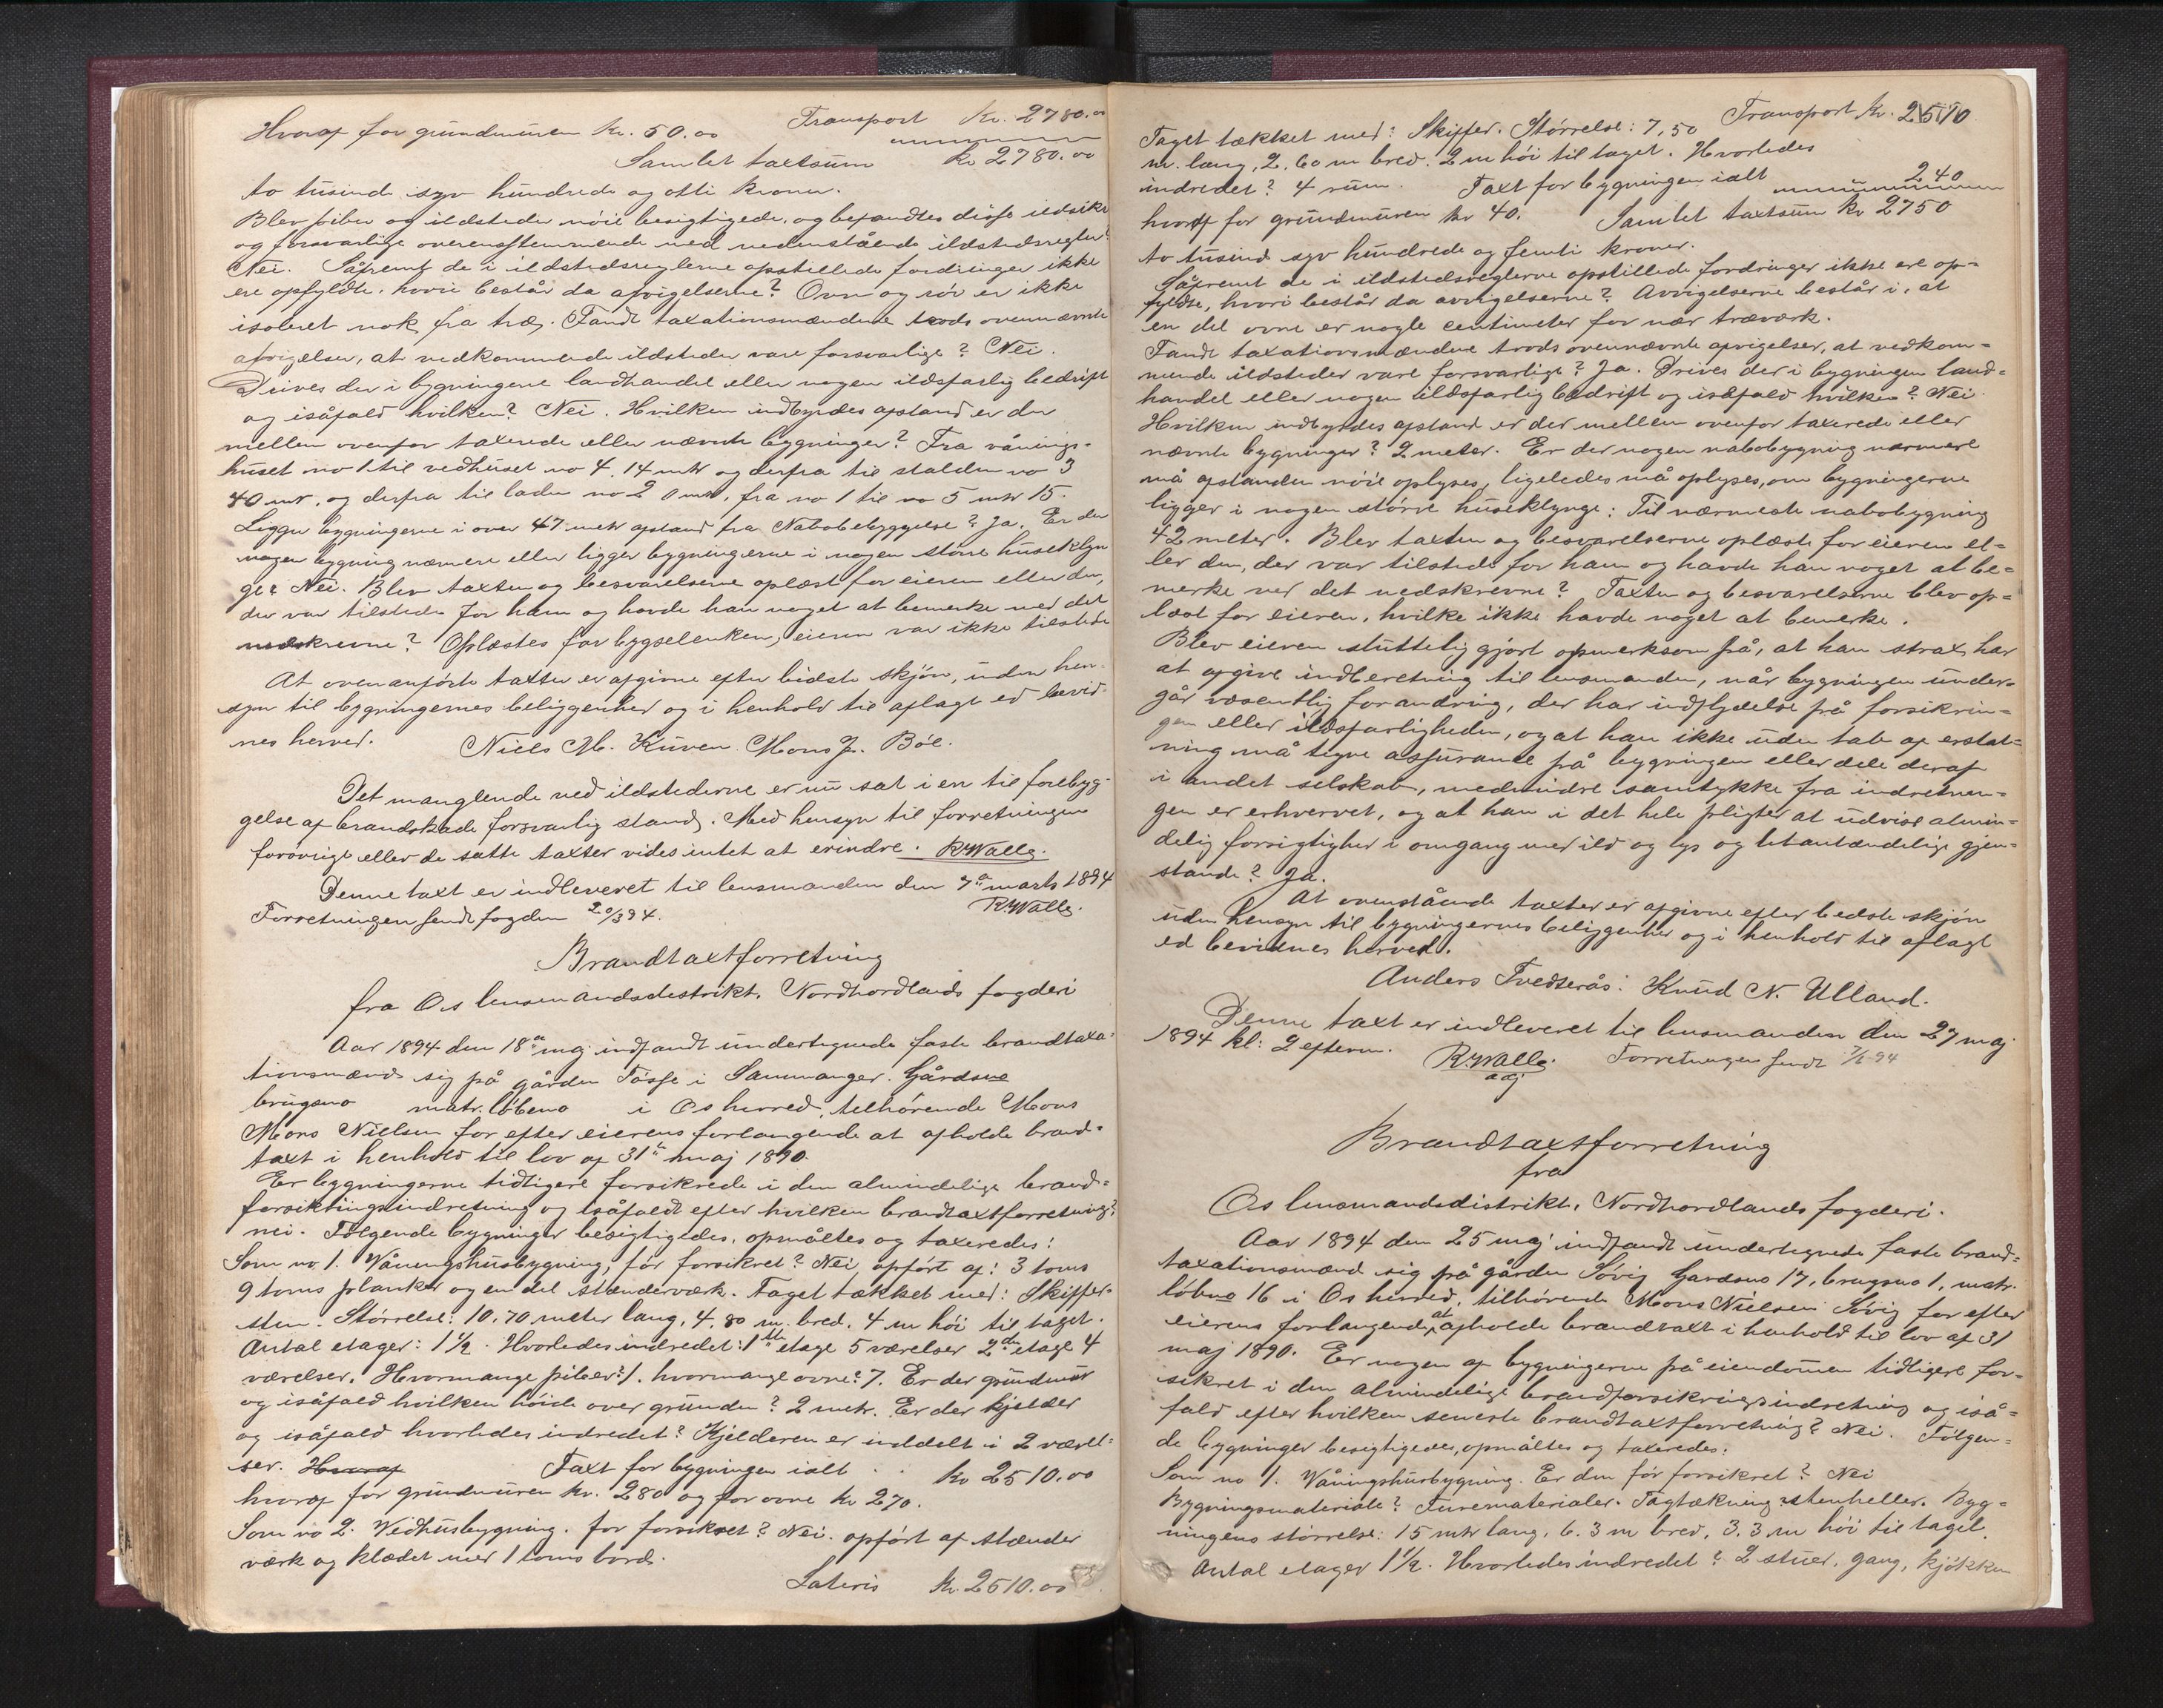 Transport Kr. 2780.00
Hvoraf for grundmuren Kr. 50.00
Samlet taxtsum Kr 2780.00
to tusinde syv hundrede og otti kroner.
Blev piber og ildsteder nöie besigtigede, og befandtes disse ildsikre
og forsvarlige overensstemmende med nedenstående ildstedsregler?
Nei. Såfremt de i ildstedsreglerne opstillede fordringer ikke
ere opfyldte, hvori består da afvigelserne? Ovn og rör er ikke
isoleret nok fra træ. Fandt taxationsmændene trods ovennævnte
afvigelser, at vedkommende ildsteder vare forsvarlige? Nei.
Drives der i bygningerne landhandel eller nogen ildsfarlig bedrift
og isåfald hvilken? Nei. Hvilken indbyrdes afstand er der
mellem ovenfor taxerede eller nævnte bygninger? Fra vånings-
huset no 1 til vedhuset no 4. 14 mtr og derfra til stalden no 3
40 mtr, og derfra til laden no 2 0 mtr, fra no 1 til no 5 mtr 15.
Ligger bygningerne i over 47 metr afstand fra Nabobebyggelse? Ja. Er der
nogen bygning nærmere eller ligger bygningerne i nogen större huseklyn
ge? Nei. Blev taxten og besvarelserne oplæst for eieren eller den,
der var tilstede for ham og havde han noget at bemerke ved det
nedskrevne? Oplæstes for bygselenken, eieren var ikke tilstede
At ovenanförte taxter er afgivne efter bedste skjön, uden hen-
syn til bygningernes beliggenhed og i henhold til aflagt ed bevid-
nes herved. Niels M. Kuven. Mons J. Böe.
Det manglende ved ildstederne er nu sat i en til forebyg-
gelse af brandskade forsvarlig stand. Med hensyn til forretningen
forövrigt eller de satte taxter vides intet at erindre. R. Walle.
Denne taxt er indleveret til lensmanden den 7de marts 1894
R. Walle.
Forretningen sendt fogden 20/3 94.
Brandtaxtforretning
fra Os lensmandsdistrikt, Nordhordlands fogderi
Aar 1894 den 18de maj indfandt undertegnede faste brandtaxa-
tionsmænd sig på gården Tösse i Sammanger. Gårdsno
brugsno matr. löbeno i Os herred, tilhörende Mons
Mons Nielsen for efter eierens forlangende at afholde brand-
taxt i henhold til lov af 31te maj 1890.
Er bygningerne tidligere forsikrede i den almindelige brand-
forsikringsindretning og isåfald efter hvilken brandtaxtforretning?
nei. Fölgende bygninger besigtigedes, opmåltes og taxeredes:
Som no 1. Våningshusbygning, för forsikret? Nei, opfört af: 3 toms
9 toms planker og en del stænderværk. Taget tækket med: Skiffer-
sten. Störrelse: 10,70 meter lang, 4,80 m. bred. 4 m höi til taget.
Antal etager: 1 1/2. Hvorledes indredet: 1ste etage 5 værelser 2den etage 4
værelser. Hvormange piber? 1. hvormange ovne? 7. Er der grundmur
og isåfald hvilken höide over grunden? 2 metr. Er der kjelder
og isåfald hvorledes indredet? Kjelderen er inddelt i 2 værel-
ser. Hvoraf Taxt for bygningen ialt . . Kr 2510.00
hvoraf for grundmuren Kr. 280 og for ovne Kr 270.
Som no 2. Vedhusbygning. för forsikret? Nei. opfört af stænder
værk og klædet med 1 toms bord.
Lateris Kr. 2510.00
Transport Kr. 2510
Taget tækket med: Skiffer. Störrelse: 7,50
m. lang, 2,60 m bred. 2 m höi til taget. Hvorledes
indredet? 4 rum. Taxt for bygningen ialt 240
hvoraf for grundmuren Kr 40. Samlet taxtsum Kr 2750
to tusind syv hundrede og femti kroner.
Såfremt de i ildstedsreglerne opstillede fordringer ikke ere op-
fyldte, hvori består da avvigelserne? Avvigelserne består i, at
en del ovne er nogle centimeter for nær træværk.
Fandt taxationsmændene trods ovennævnte afvigelser, at vedkom-
mende ildsteder vare forsvarlige? Ja. Drives der i bygningen land-
handel eller nogen ildsfarlig bedrift og isåfald hvilken? Nei.
Hvilken indbyrdes afstand er der mellem ovenfor taxerede eller
nævnte bygninger? 2 meter. Er der nogen nabobygning nærmere
må afstanden nöie oplyses, ligeledes må oplyses, om bygningerne
ligger i nogen större huseklynge: Til nærmeste nabobygning
42 meter. Blev taxten og besvarelserne oplæste for eieren el-
ler den, der var tilstede for ham og havde han noget at be-
merke ved det nedskrevne? Taxten og besvarelserne blev op-
læst for eieren, hvilke ikke havde noget at bemerke.
Blev eieren sluttelig gjort opmerksom på, at han strax har
at afgive indberetning til lensmanden, når bygningen under-
går væsentlig forandring, der har indflydelse på forsikrin-
gen eller ildsfarligheden, og at han ikke uden tab af erstat-
ning må tegne assurance på bygningen eller dele deraf
i andet selskab, medmindre samtykke fra indretnin-
gen er erhvervet, og at han i det hele pligter at udvise almin-
delig forsigtighed i omgang med ild og lys og letantændelige gjen-
stande? Ja.
At ovenstående taxter er afgivne efter bedste skjön
uden hensyn til bygningernes beliggenhed og i henhold til aflagt
ed bevidnes herved.
Anders Tvedterås: Knud N. Ulland.
Denne taxt er indleveret til lensmanden den 27 maj
1894 kl: 2 efterm. R. Walle. Forretningen sendt 7/6 94
adj
Brandtaxtforretning
fra
Os lensmandsdistrikt, Nordhordlands fogderi.
Aar 1894 den 25 maj indfandt undertegnede faste brand-
taxationsmænd sig på gården Sövig Gardsno 17, brugsno 1, matr.
löbno 16 i Os herred, tilhörende Mons Nielsen Sövig for efter
eierens forlangende at afholde brandtaxt i henhold til lov af 31
maj 1890. Er nogen af bygningerne på eiendommen tidligere for-
sikret i den almindelige brandforsikringsindretning og iså-
fald efter hvilken seneste brandtaxtforretning? Nei. Fölgen-
de bygninger besigtigedes, opmåltes og taxeredes:
Som no 1. Våningshusbygning. Er den för forsikret? Nei
Bygningsmateriale? Furematerialer. Tagtækning? stenheller. Byg-
ningens störrelse: 15 mtr lang, 6.3 m bred, 3.3 m höi til taget.
Antal etager 1 1/2. Hvorledes indredet? 2 stuer, gang, kjökken